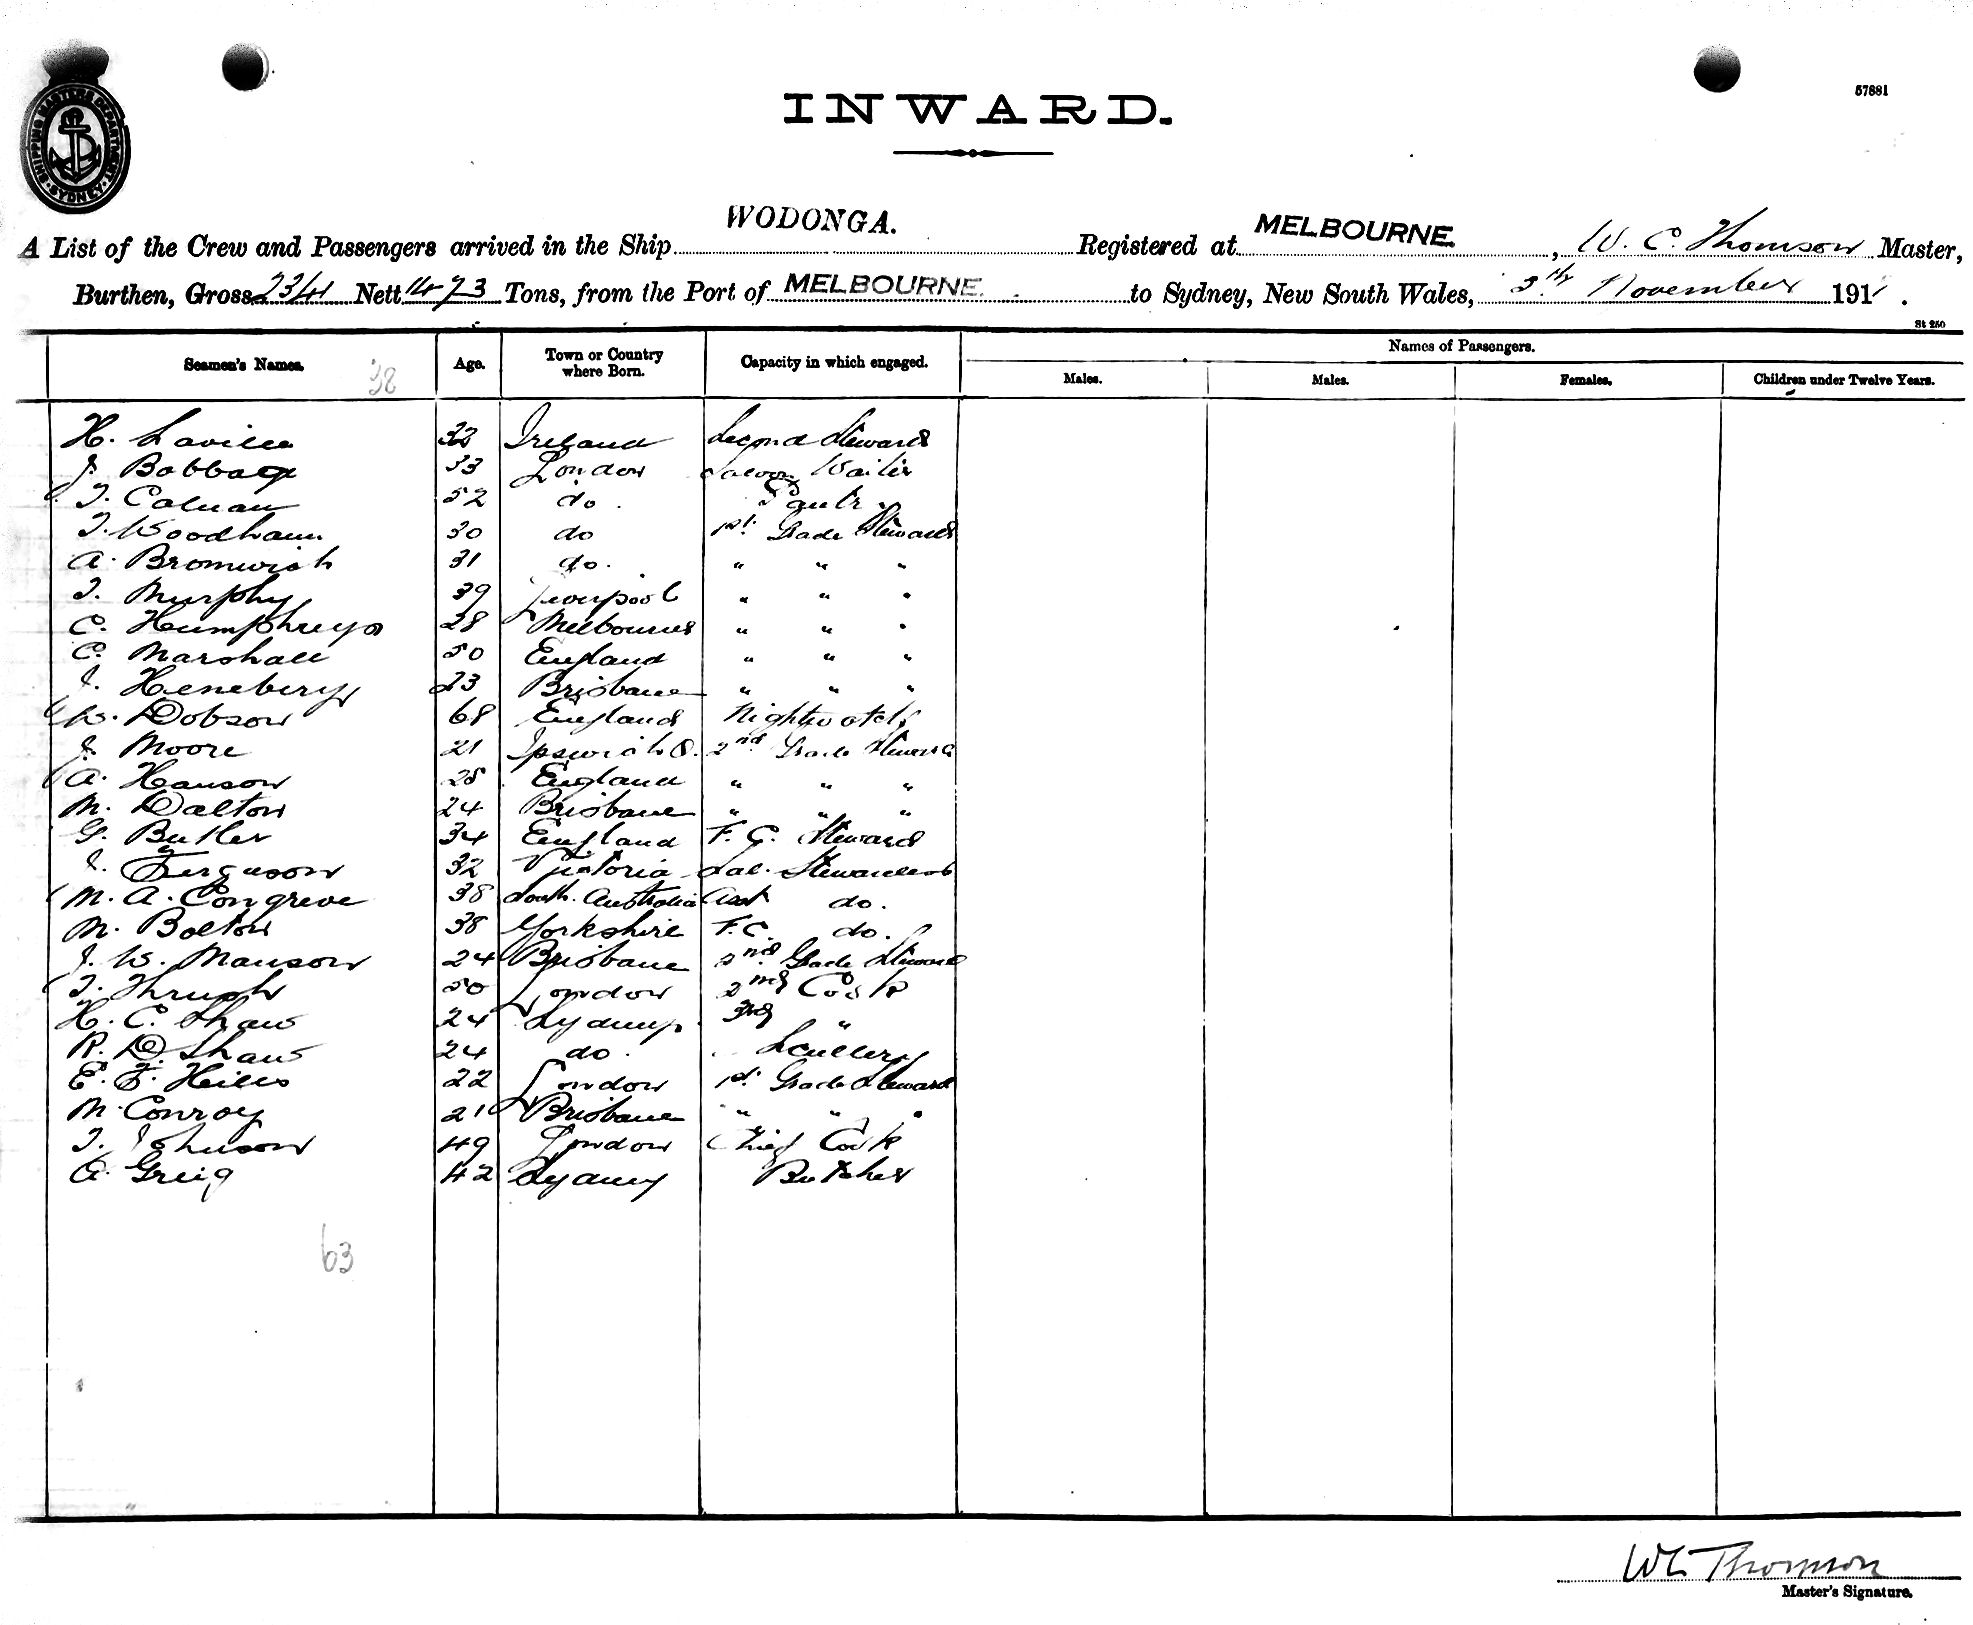 57881
INWARD.
SHIPPING MASTERS DEPARTMENT. SYDNEY.
A List of the Crew and Passengers arrived in the Ship WODONGA. Registered at MELBOURNE, W. C. Thomson Master,
Burthen, Gross 2341 Nett 1473 Tons, from the Port of MELBOURNE. to Sydney, New South Wales, 3rd November 1911.
St 250
Seamen's Names. 38 Age. Town or Country where Born. Capacity in which engaged. Names of Passengers.
Males. Males. Females. Children under Twelve Years.
H. Saville 32 Ireland Second Steward
J. Babbage 33 London Saloon Waiter
T. Calnan 52 do. Pantr.
T. Woodham 30 do 1st Grade Steward
A. Bromwich 31 do. " " "
T. Murphy 39 Liverpool " " "
C. Humphreys 28 Melbourne " " "
C. Marshall 50 England " " "
J. Henebery 23 Brisbane " " "
W. Dobson 68 England Nightwatch
J. Moore 21 Ipswich Q. 2nd Grade Steward
A. Hanson 28 England " " "
M. Dalton 24 Brisbane " " "
G. Butler 34 England F. C. Steward
J. Ferguson 32 Victoria Sal. Stewardess
M. A. Congreve 38 South Australia Asst do.
M. Bolton 38 Yorkshire F. C. do.
J. W. Manson 24 Brisbane 2nd Grade Steward
T. Thrush 50 London 2nd Cook
H. C. Shaw 24 Sydney 3rd "
R. D. Shaw 24 do. Scullery
E. F. Hills 22 London 1st Grade Steward
M. Conroy 21 Brisbane " " "
T. Johnson 49 London Chief Cook
A. Greig 42 Sydney Butcher
63
WC Thomson
Master's Signature.